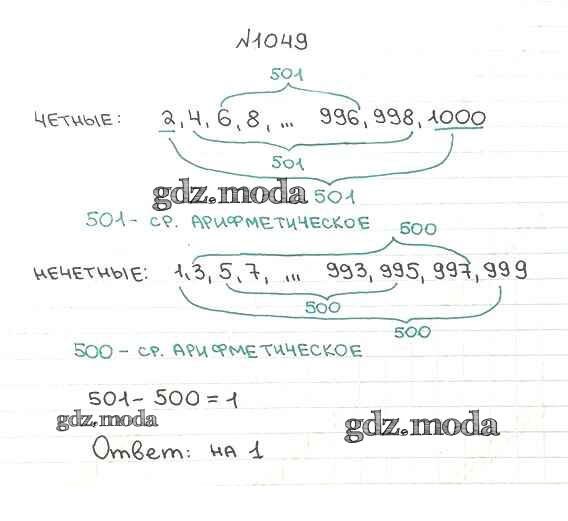 №1049
501
ЧЕТНЫЕ: 2, 4, 6, 8, ... 996, 998, 1000
501
gdz.moda 501
501 - СР. АРИФМЕТИЧЕСКОЕ
500
НЕЧЕТНЫЕ: 1, 3, 5, 7, ... 993, 995, 997, 999
500
500
500 - СР. АРИФМЕТИЧЕСКОЕ
501 - 500 = 1
gdz.moda
gdz.moda
Ответ: на 1